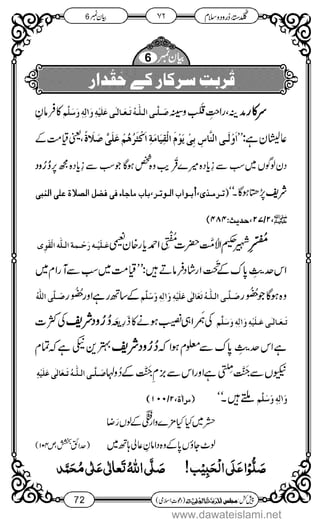 بیان نمبر 6 ۷۲ گلدستۂ دُرود و سلام
بیان نمبر 6
قُربتِ سرکار کے حقدار
سرکارِ مدینہ، راحتِ قلب و سینہ صَلَّی اللہُ تَعَالٰی عَلَیْہِ وَاٰلِہٖ وَسَلَّمَ کا فرمانِ
عالیشان ہے: ’’اَوْلَی النَّاسِ بِیْ یَوْمَ الْقِیَامَۃِ اَکْثَرُھُمْ عَلَیَّ صَلَاۃً، یعنی قیامت کے
دن لوگوں میں سب سے زیادہ میرے قریب وہ شخص ہوگا جو سب سے زیادہ مجھ پر دُرُود
شریف پڑھتا ہوگا۔‘‘ (ترمذی، أبواب الوتر، باب ماجاء فی فضل الصلاۃ علی النبی
ﷺ، ۲۷/۲، حدیث: ۴۸۴)
مُفَسِّرِ شہیر حکیمُ الاُمَّت حضرت مُفتی احمد یار خان نعیمی عَلَیْہِ رَحْمَۃُ اللہِ الْقَوِی
اس حدیثِ پاک کے تحت ارشاد فرماتے ہیں: ’’قیامت میں سب سے آرام میں
وہ ہوگا جو حُضُور صَلَّی اللہُ تَعَالٰی عَلَیْہِ وَاٰلِہٖ وَسَلَّمَ کے ساتھ رہے اور حُضُور صَلَّی اللہُ
تَعَالٰی عَلَیْہِ وَاٰلِہٖ وَسَلَّمَ کی ہمراہی نصیب ہونے کا ذریعہ دُرُود شریف کی کثرت
ہے اس حدیثِ پاک سے معلوم ہوا کہ دُرُود شریف بہترین نیکی ہے کہ تمام
نیکیوں سے جنّت ملتی ہے اور اس سے بزمِ جنّت کے دُولہا صَلَّی اللہُ تَعَالٰی عَلَیْہِ
وَاٰلِہٖ وَسَلَّمَ ملتے ہیں۔‘‘ (مراۃ، ۱۰۰/۲)
حشر میں کیا کیا مزے وارفتگی کے لوں رضا
لوٹ جاؤں پا کے وہ دامانِ عالی ہاتھ میں (حدائقِ بخشش، ص ۱۰۴)
صَلُّوْا عَلَی الْحَبِیْب! صَلَّی اللہُ تَعَالٰی عَلٰی مُحَمَّد
72
(دعوتِ اسلامی)
www.dawateislami.net